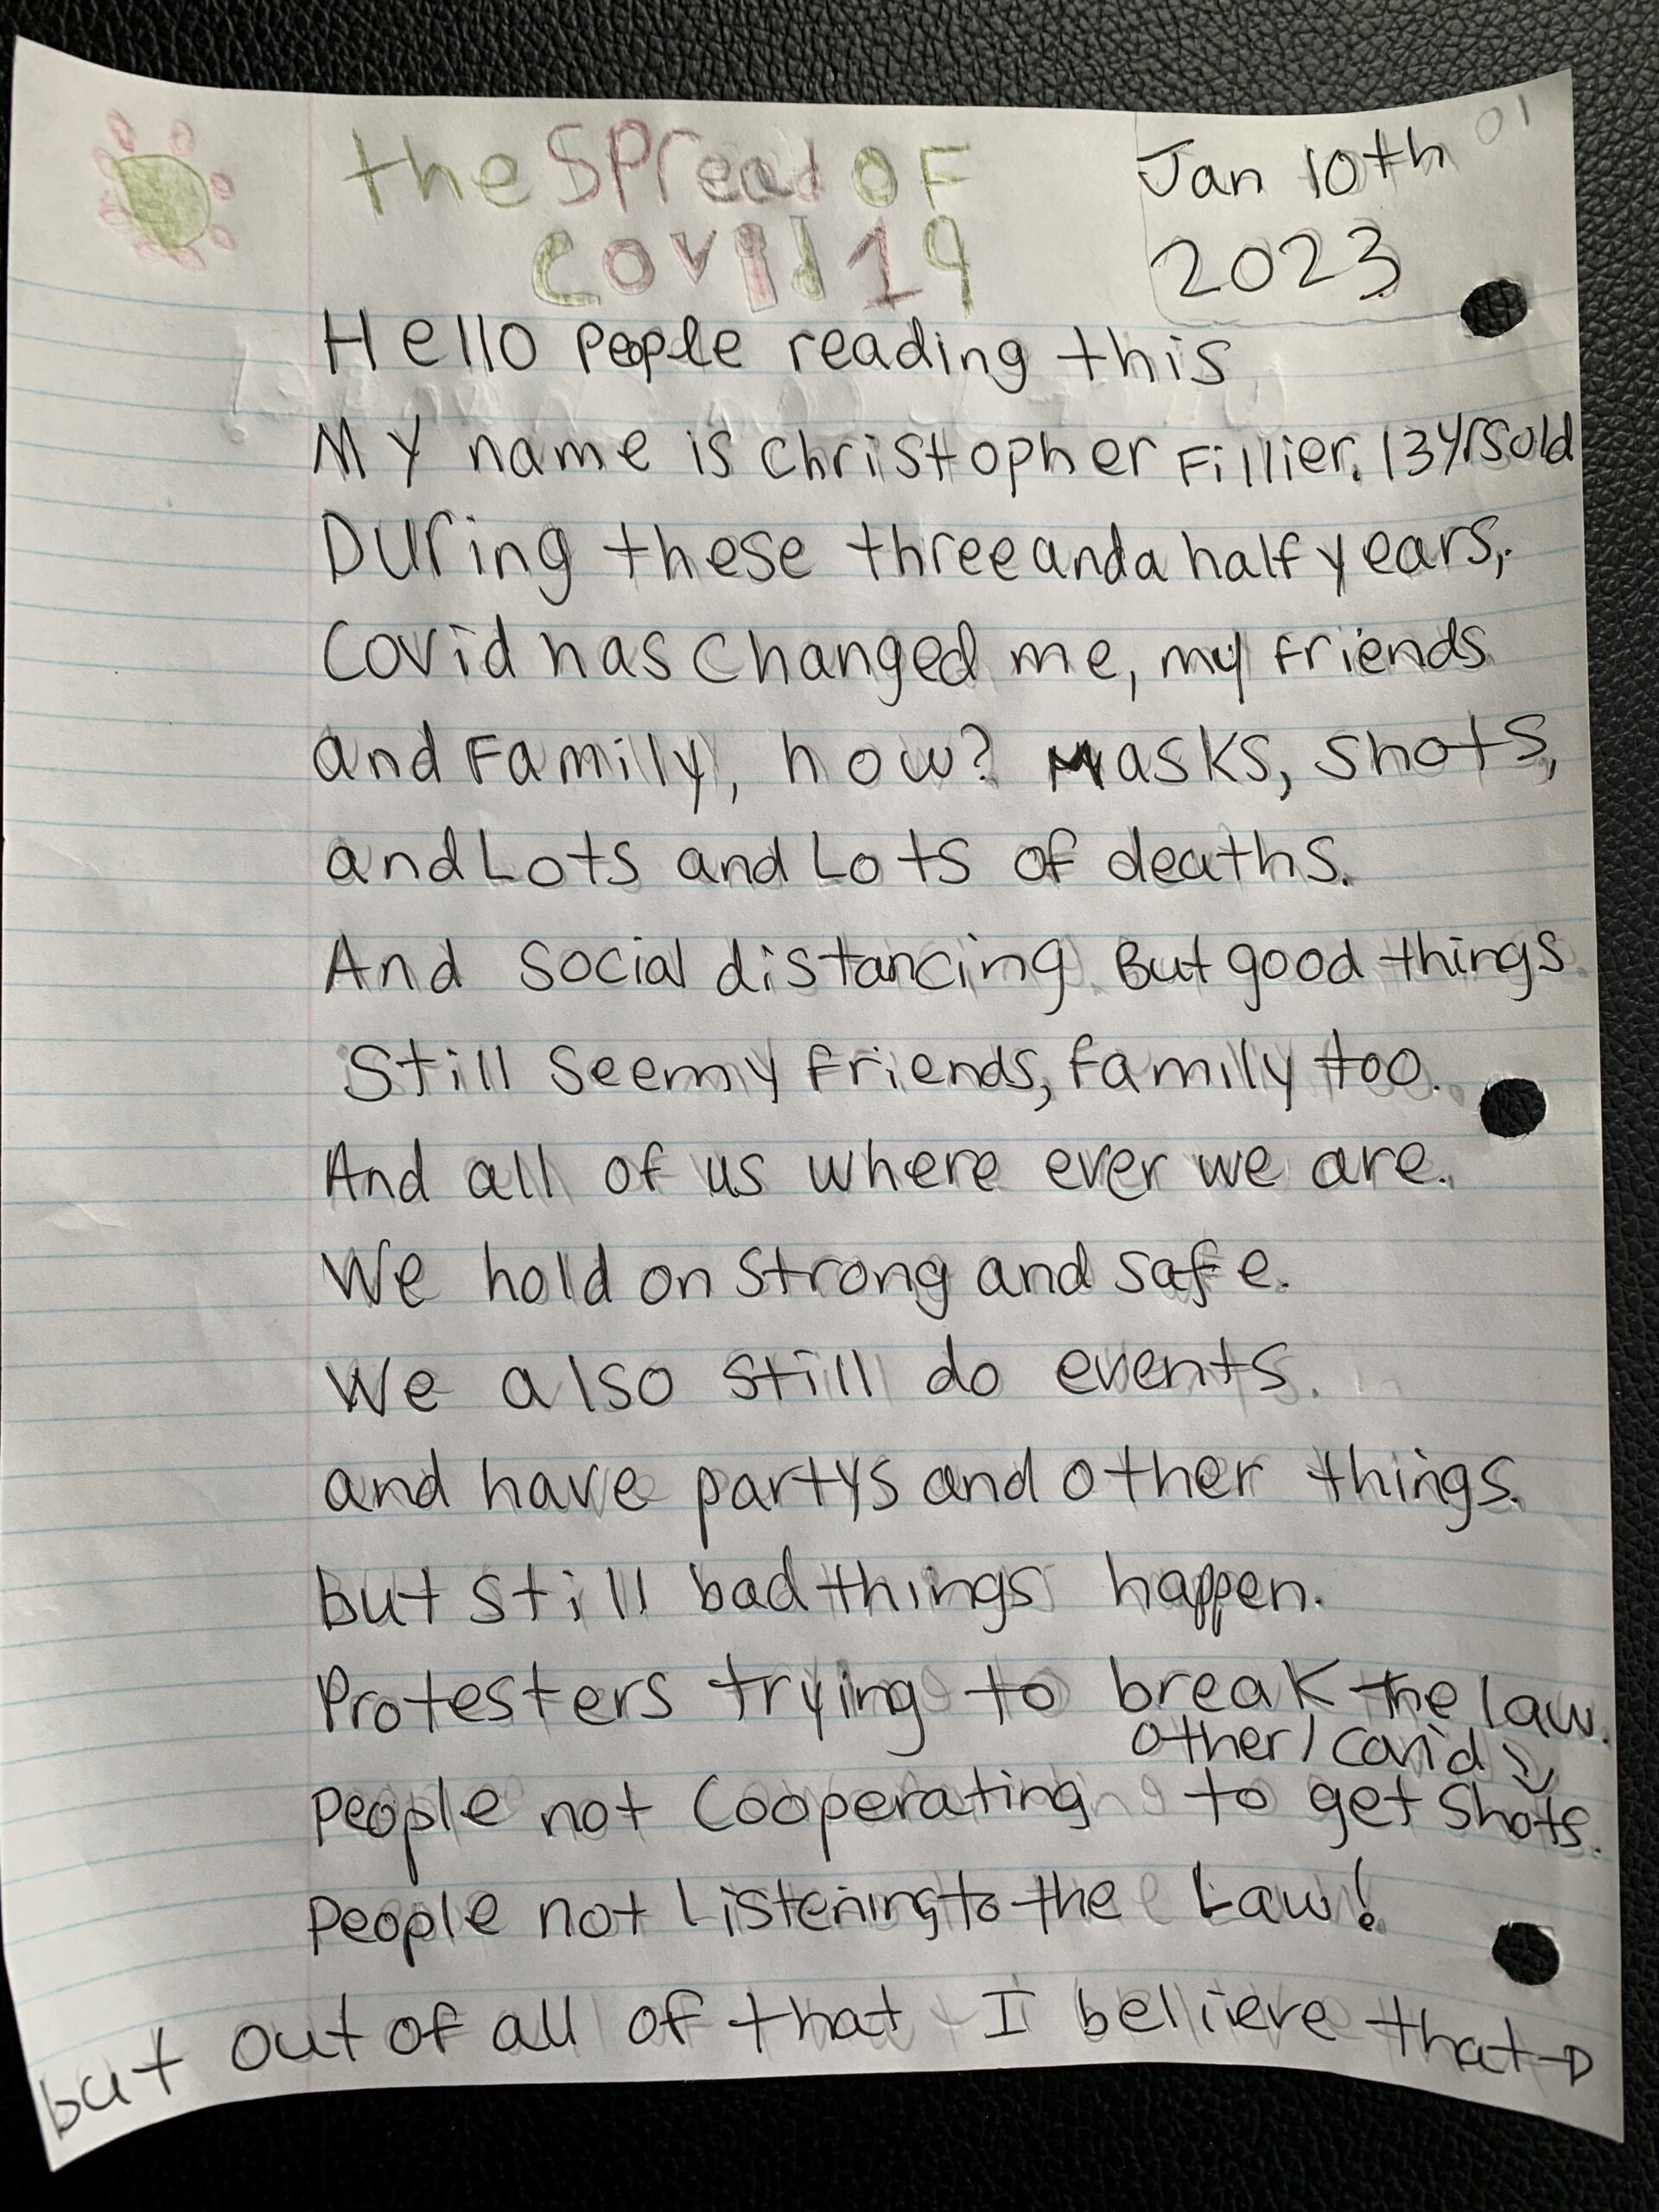 the Spread OF
Covid 19
Jan 10th
2023
01
Hello People reading this
My name is Christopher Fillier. 13 yrs old
During these three and a half years,
Covid has changed me, my friends
and Family, how? Masks, Shots,
and Lots and Lots of deaths.
And social distancing. But good things
Still see my friends, family too.
And all of us where ever we are.
We hold on strong and safe.
We also still do events.
and have partys and other things.
but still bad things happen.
Protesters trying to break the law.
other/covid
People not Cooperating to get shots.
People not Listening to the Law!
but out of all of that I believe that